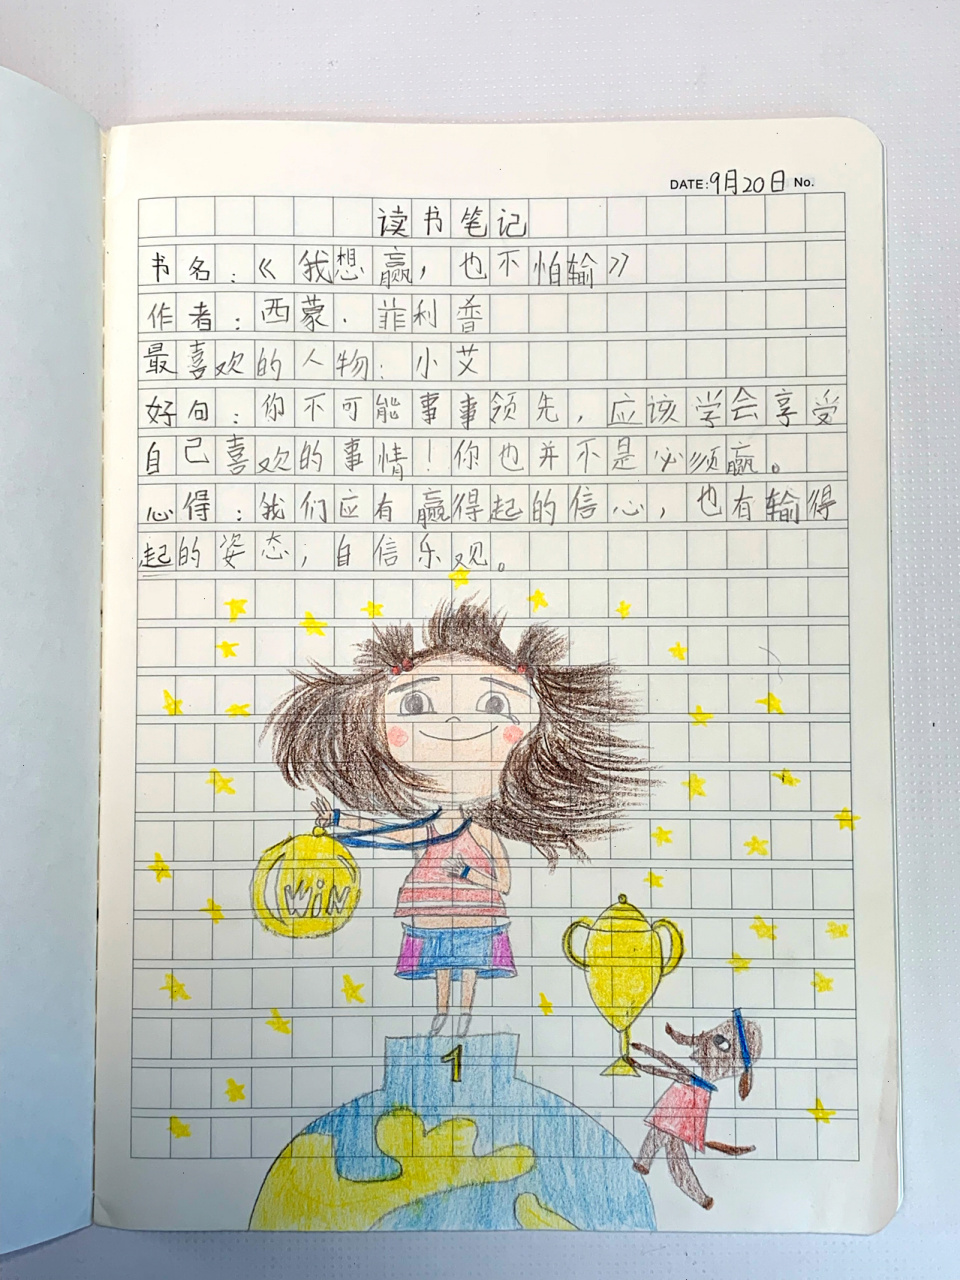 DATE:9月20日 No.
读书笔记
书名：《我想赢，也不怕输》
作者：西蒙·菲利普
最喜欢的人物：小艾
好句：你不可能事事领先，应该学会享受
自己喜欢的事情！你也并不是必须赢。
心得：我们应有赢得起的信心，也有输得
起的姿态，自信乐观。
WiN
1